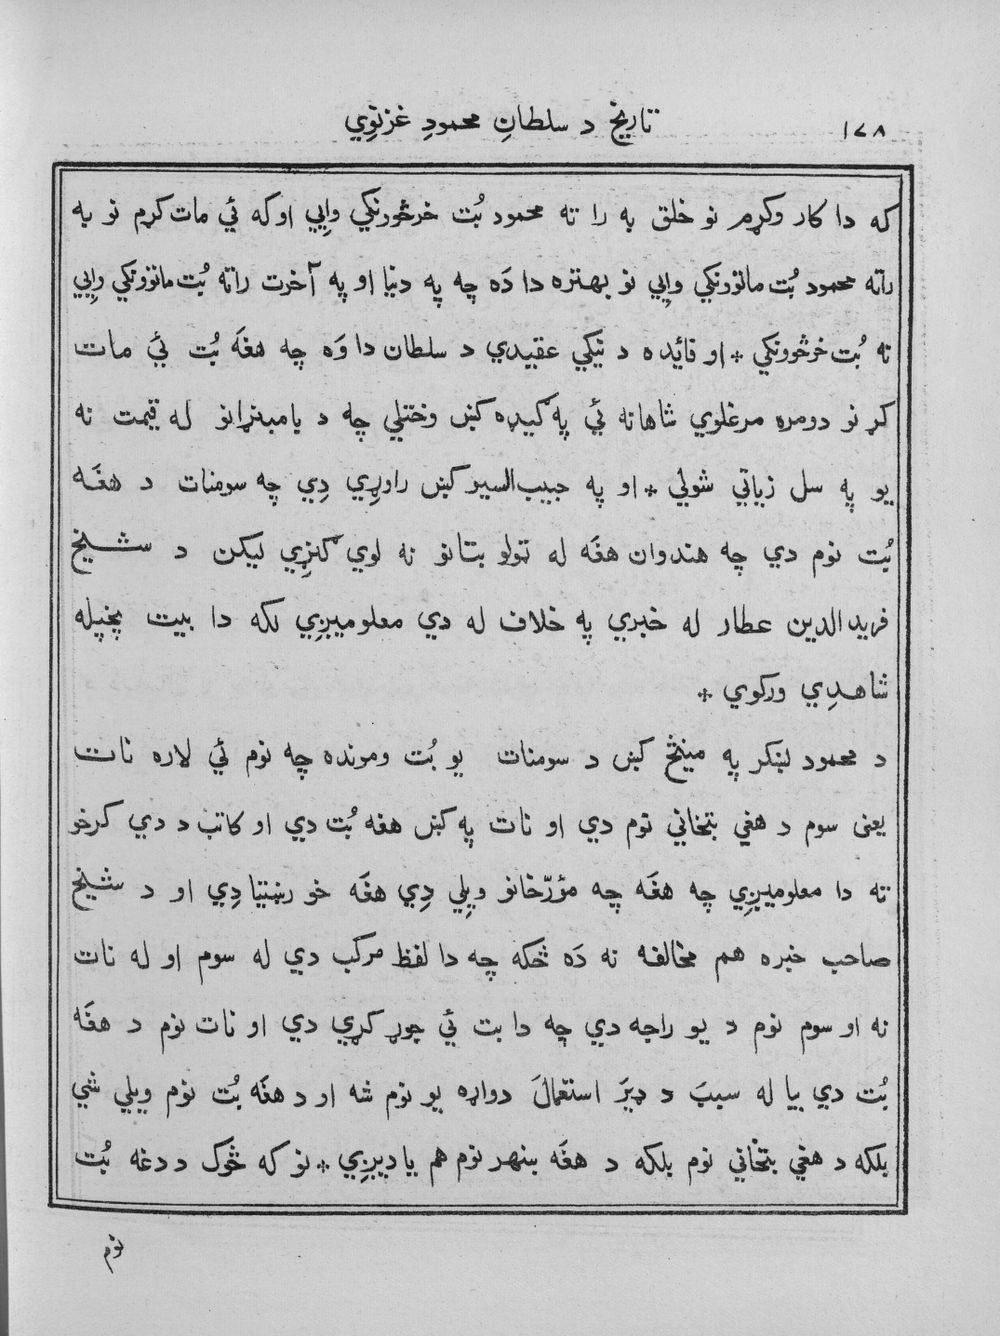 ١٧٨ تاريخ د سلطانِ محمودِ غزنوِي
که دا کار وکړم نو خلق به را ته محمود بُت خرڅورنکي وايِي او که ئي مات کړم نو به
راته محمود بُت ماتوونکي وايِي نو بهتره دا دَه چه په دنيا او په آخرت راته بُت ماتوونکي وايِي
نه بُت خرڅوونکي * او فائيده د نيکي عقيدي د سلطان دا وَه چه هغَه بُت ئي مات
کړ نو دومره مرغلوي شاهانه ئي په ګيډه کښ وختلي چه د بامبنړانو له قيمت نه
يو په سل زياتي شولي * او په حبيب السير کښ راوړي دِي چه سومنات د هغَه
بُت نوم دي چه هندوان هغَه له ټولو بتانو نه لوي ګنړِي ليکن د شيخ
فريد الدين عطار له خبري په خلاف له دي معلوميږِي لکه دا بيت پخپله
شاهدِي ورکوي *
د محمود لښکر په مينځ کښ د سومنات يو بُت وموندہ چه نوم ئي لاره نات
يعنى سوم د هغي بتخاني نوم دي او نات په کښ هغه بُت دي او کاتب د دي کرښو
ته دا معلوميږِي چه هغَه چه مؤرّخانو ويلِي دِي هغَه خو رښتيا دِي او د شيخ
صاحب خبره هم مخالفه نه دَه ځکه چه دا لفظ مرکب دي له سوم او له نات
نه او سوم نوم د يو راجه دي چه دا بت ئي جوړ کړي دي او نات نوم د هغَه
بُت دي بيا له سببَ د ډيرَ استعمالَ دواړه يو نوم شه او د هغَه بُت نوم ويلي شي
بلکه د هغي بتخاني نوم بلکه د هغَه ښهر نوم هم ياديږِي * نو که څوک د دغه بُت
نوم